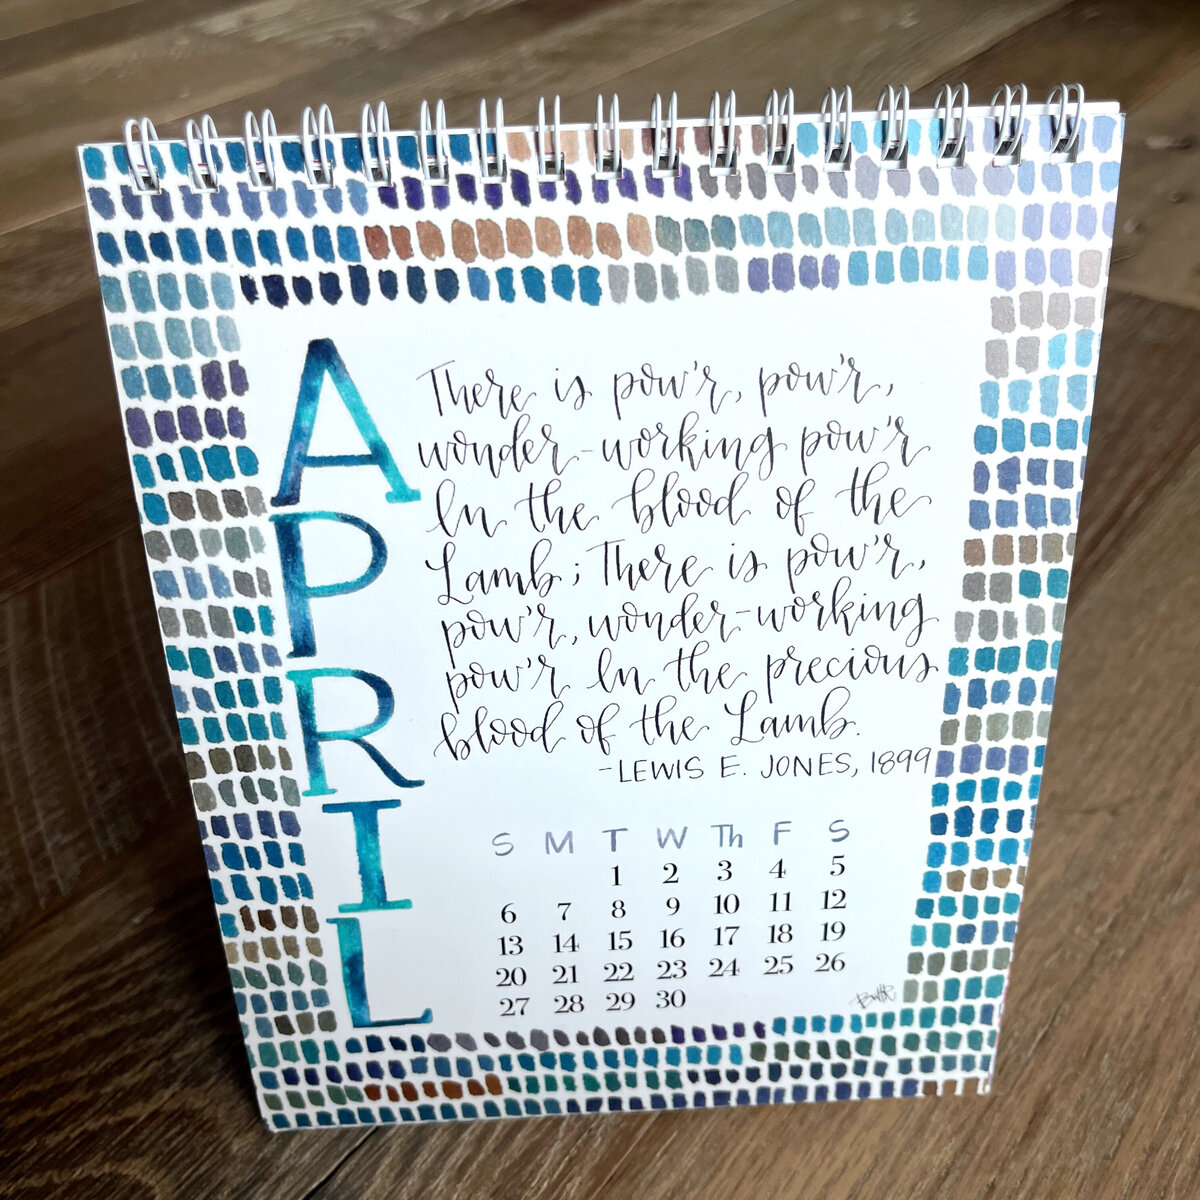 APRIL
There is pow'r, pow'r,
wonder-working pow'r
In the blood of the
Lamb; There is pow'r,
pow'r, wonder-working
pow'r In the precious
blood of the Lamb.
-LEWIS E. JONES, 1899
S M T W Th F S
1 2 3 4 5
6 7 8 9 10 11 12
13 14 15 16 17 18 19
20 21 22 23 24 25 26
27 28 29 30